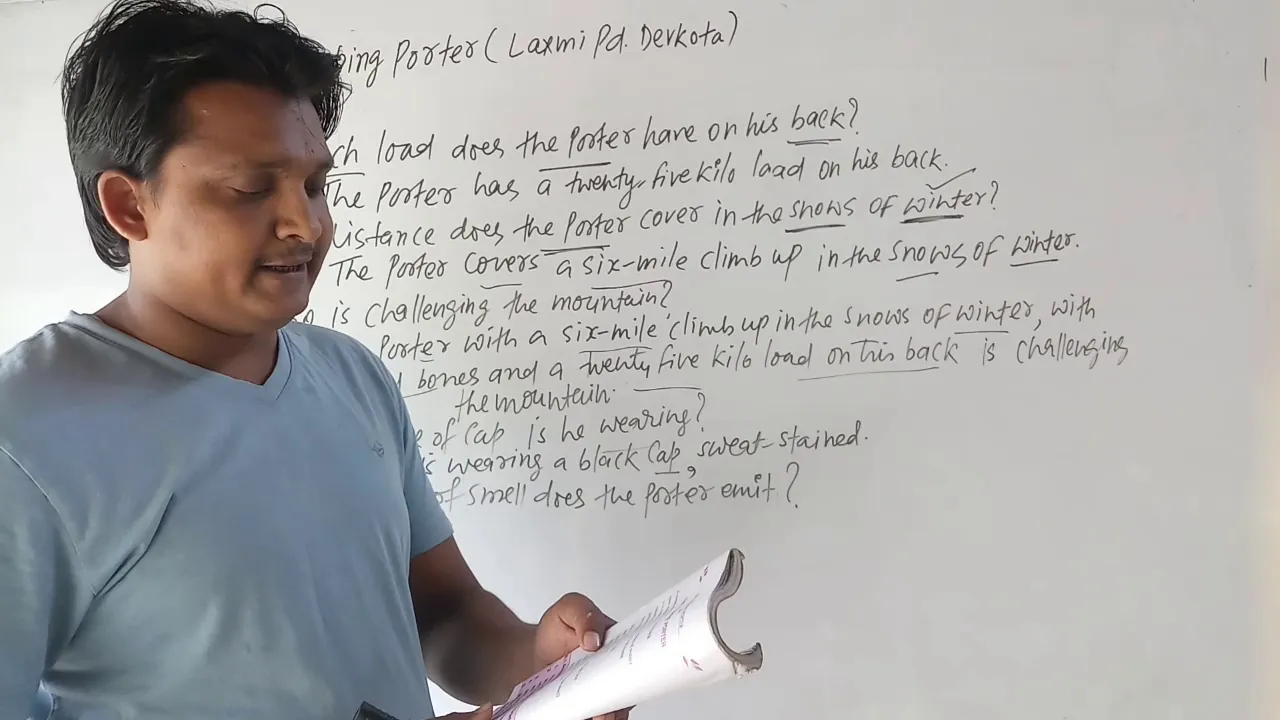 ping Porter (Laxmi Pd. Devkota)
ch load does the Porter have on his back?
The Porter has a twenty-five kilo load on his back.
istance does the Porter cover in the snows of winter?
The Porter covers a six-mile climb up in the snows of winter.
o is challenging the mountain?
Porter with a six-mile climb up in the snows of winter, with
bones and a twenty five kilo load on his back is challenging
the mountain.
e of Cap is he wearing?
is wearing a black Cap, sweat-stained.
of smell does the Porter emit?
PORTER